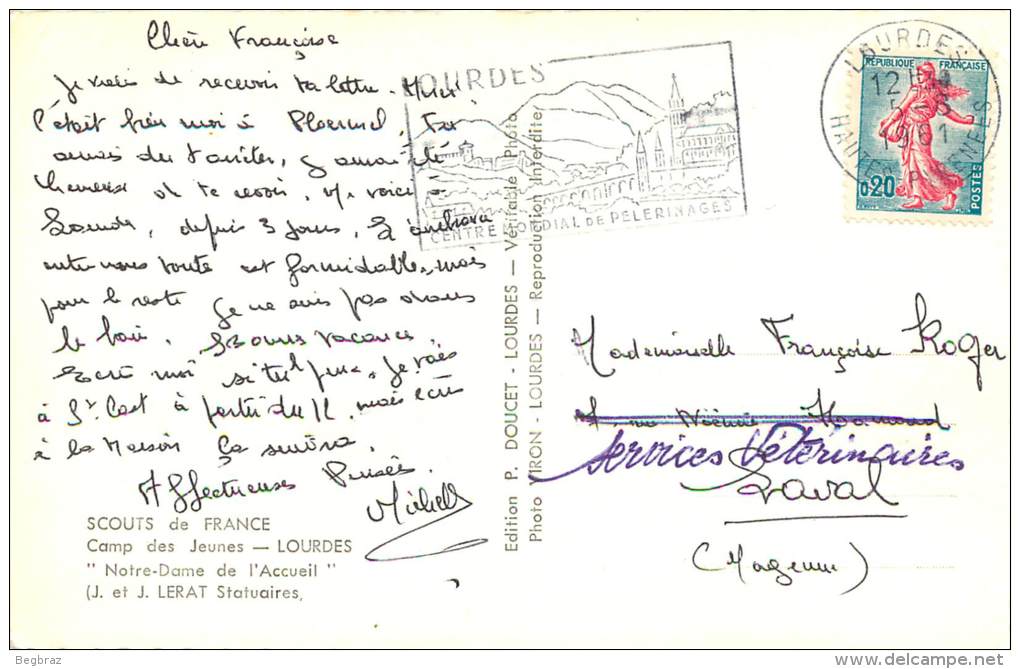 Chère Françoise
Je viens de recevoir ta lettre. Merci
c'était bien moi à Ploermel,
heureux de te revoir,
Lourdes, depuis 3 jours, L'ambiance
entre nous toute est formidable, mais
pour le reste je ne suis pas dans
le bain. Bonnes vacances
Ecris moi si tu peux. Je vais
à St Cast à partir du 12. mais écris
à la Maison ça suivra.
Affectueuses Pensées.
Michelle
SCOUTS de FRANCE
Camp des Jeunes — LOURDES
" Notre-Dame de l'Accueil "
(J. et J. LERAT Statuaires,
Edition P. DOUCET - LOURDES — Véritable Photo
Photo VIRON - LOURDES — Reproduction Interdite
LOURDES
CENTRE MONDIAL DE PELERINAGES
LOURDES
12 H
5 - 8
1961
HAUTES PYRENEES
REPUBLIQUE FRANÇAISE
0,20
POSTES
Mademoiselle Françoise Roger
Services Vétérinaires
Laval
(Mayenne)
Begbraz
delcampe.net